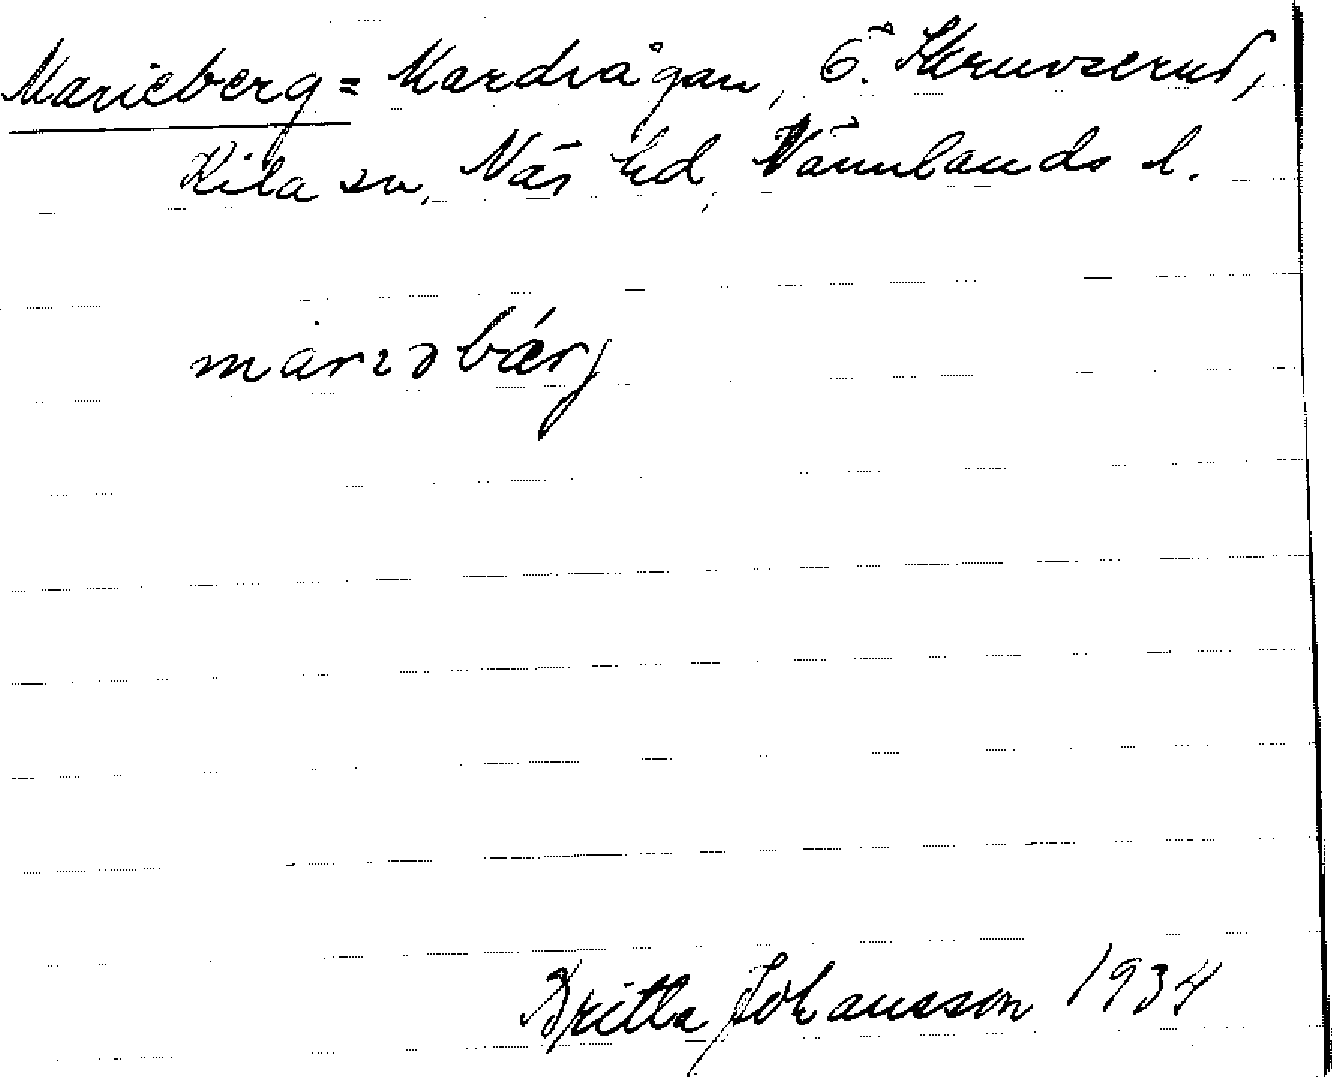 Marieberg = Mardvågan, Ö. Skruvserud,
Kila sn, Näs hd, Värmlands l.
marɪəbærj
Britta Johansson 1934